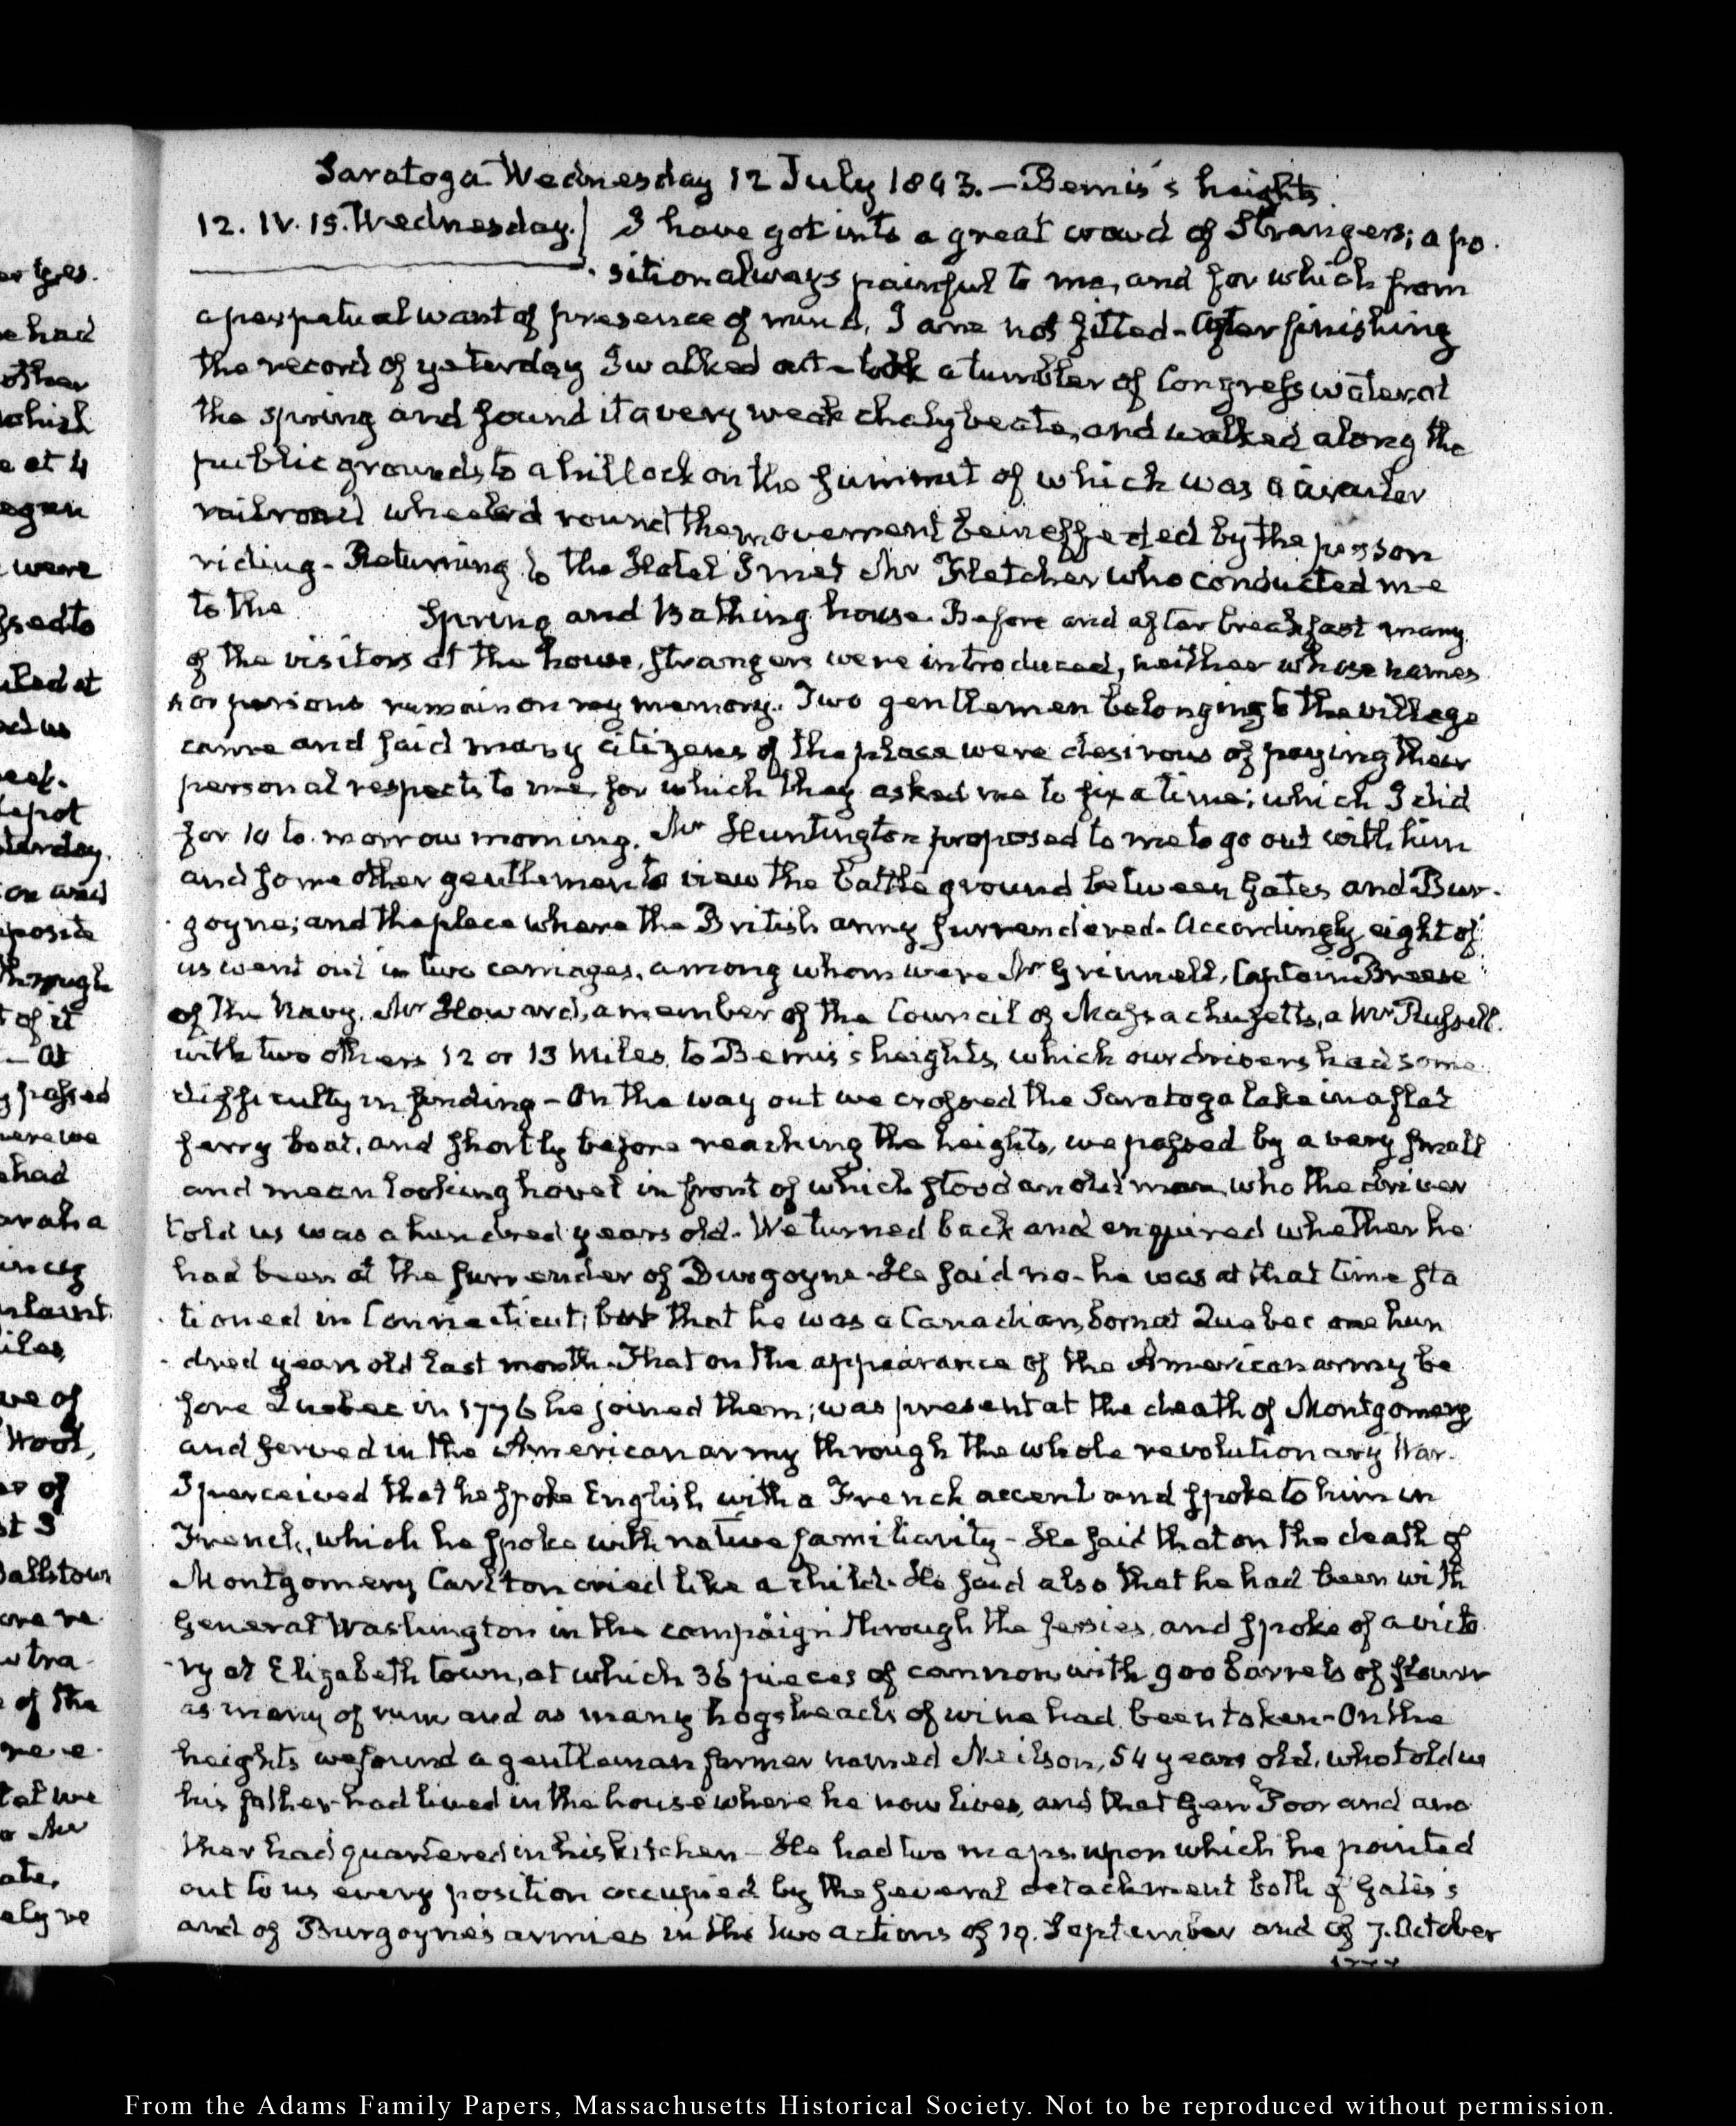 Saratoga Wednesday 12 July 1843. — Bemis's heights.
12. IV. 15. Wednesday. I have got into a great crowd of Strangers; a po
sition always painful to me, and for which from
a perpetual want of presence of mind, I am not fitted - After finishing
the record of yesterday I walked out - took a tumbler of Congress water at
the spring and found it a very weak chalybeate, and walked along the
public grounds to a hillock on the summit of which was a circular
railroad wheeled round the movement being effected by the person
riding - Returning to the Hotel I met Mr Fletcher who conducted me
to the Spring and Bathing house. Before and after breakfast many
of the visitors at the house, strangers were introduced, neither whose names
nor persons remain on my memory. Two gentlemen belonging to the village
came and said many citizens of the place were desirous of paying their
personal respects to me, for which they asked me to fix a time; which I did
for 10 to-morrow morning. Mr Huntington proposed to me to go out with him
and some other gentlemen to view the battle ground between Gates and Bur-
goyne; and the place where the British army surrendered. Accordingly eight of
us went out in two carriages, among whom were Mr Grinnell, Captain Breese
of the Navy, Mr Howard, a member of the Council of Massachusetts, a Mr Russell
with two others 12 or 13 Miles, to Bemis's heights, which our drivers had some
difficulty in finding - On the way out we crossed the Saratoga lake in a flat
ferry boat, and shortly before reaching the heights, we passed by a very small
and mean looking hovel in front of which stood an old man, who the driver
told us was a hundred years old. We turned back and enquired whether he
had been at the surrender of Burgoyne - He said no - he was at that time sta
tioned in Connecticut; but that he was a Canadian, born at Quebec one hun
dred years old last month. That on the appearance of the American army be
fore Quebec in 1776 he joined them; was present at the death of Montgomery
and served in the American army through the whole revolutionary War.
I perceived that he spoke English with a French accent and spoke to him in
French, which he spoke with native familiarity - He said that on the death of
Montgomery Carlton cried like a child. He said also that he had been with
General Washington in the campaign through the Jersies, and spoke of a victo
ry at Elizabeth town, at which 36 pieces of cannon with 900 barrels of flour
as many of rum and as many hogsheads of wine had been taken - On the
heights we found a gentleman farmer named Neilson, 54 years old, who told us
his father had lived in the house where he now lives, and that Genl Poor and ano
ther had quartered in his kitchen - He had two maps upon which he pointed
out to us every position occupied by the several detachment both of Gates's
and of Burgoyne's armies in the two actions of 19. September and of 7. October
1777
From the Adams Family Papers, Massachusetts Historical Society. Not to be reproduced without permission.